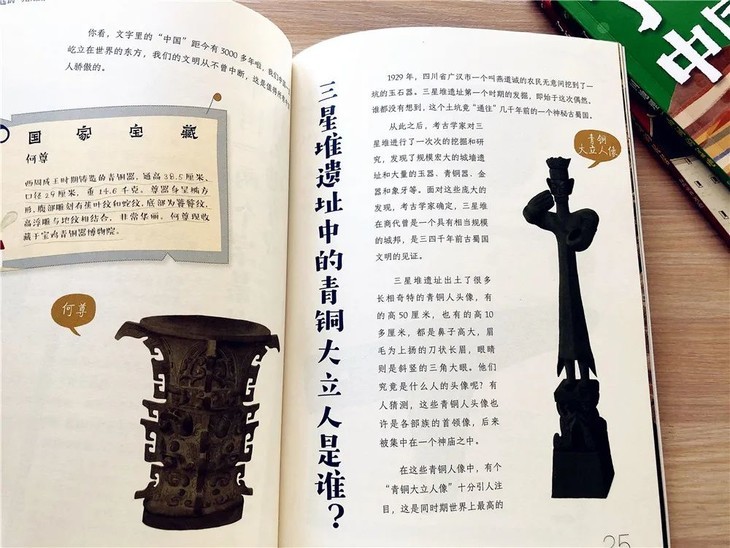 你看，文字里的“中国”距今有3000多年啦，我们
屹立在世界的东方，我们的文明从不曾中断，这是值得
人骄傲的。
国家宝藏
何尊
西周成王时期铸造的青铜器，通高38.5厘米、
口径29厘米，重14.6千克。尊器身呈椭方
形，腹部雕刻有蕉叶纹和蛇纹，底部为饕餮纹，
高浮雕与地纹相结合，非常华丽。何尊现收
藏于宝鸡青铜器博物院。
何尊
三星堆遗址中的青铜大立人是谁？
1929年，四川省广汉市一个叫燕道诚的农民无意间挖到了一
坑的玉石器。三星堆遗址第一个时期的发掘，即始于这次偶然。
谁都没有想到，这个土坑竟“通往”几千年前的一个神秘古蜀国。
从此之后，考古学家对三
星堆进行了一次次的挖掘和研
究，发现了规模宏大的城墙遗址
和大量的玉器、青铜器、金
器和象牙等。面对这些庞大的
发现，考古学家确定，三星堆
在商代曾是一个具有相当规模
的城邦，是三四千年前古蜀国
文明的见证。
三星堆遗址出土了很多
长相奇特的青铜人头像，有
的高50厘米，也有的高10
多厘米，都是鼻子高大，眉
毛为上扬的刀状长眉，眼睛
则是斜竖的三角大眼。他们
究竟是什么人的头像呢？有
人猜测，这些青铜人头像也
许是各部族的首领像，后来
被集中在一个神庙之中。
在这些青铜人像中，有个
“青铜大立人像”十分引人注
目，这是同时期世界上最高的
青铜
大立人像
25
中国